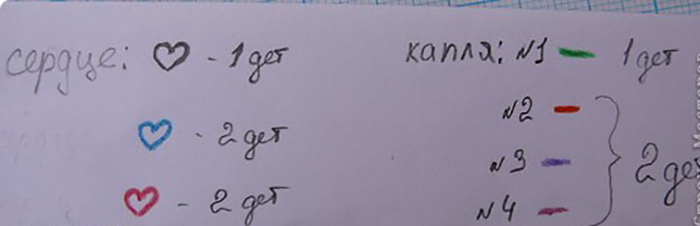 сердце: - 1 дет
- 2 дет
- 2 дет
капля: №1 - 1 дет
№2
№3
№4
2 дет